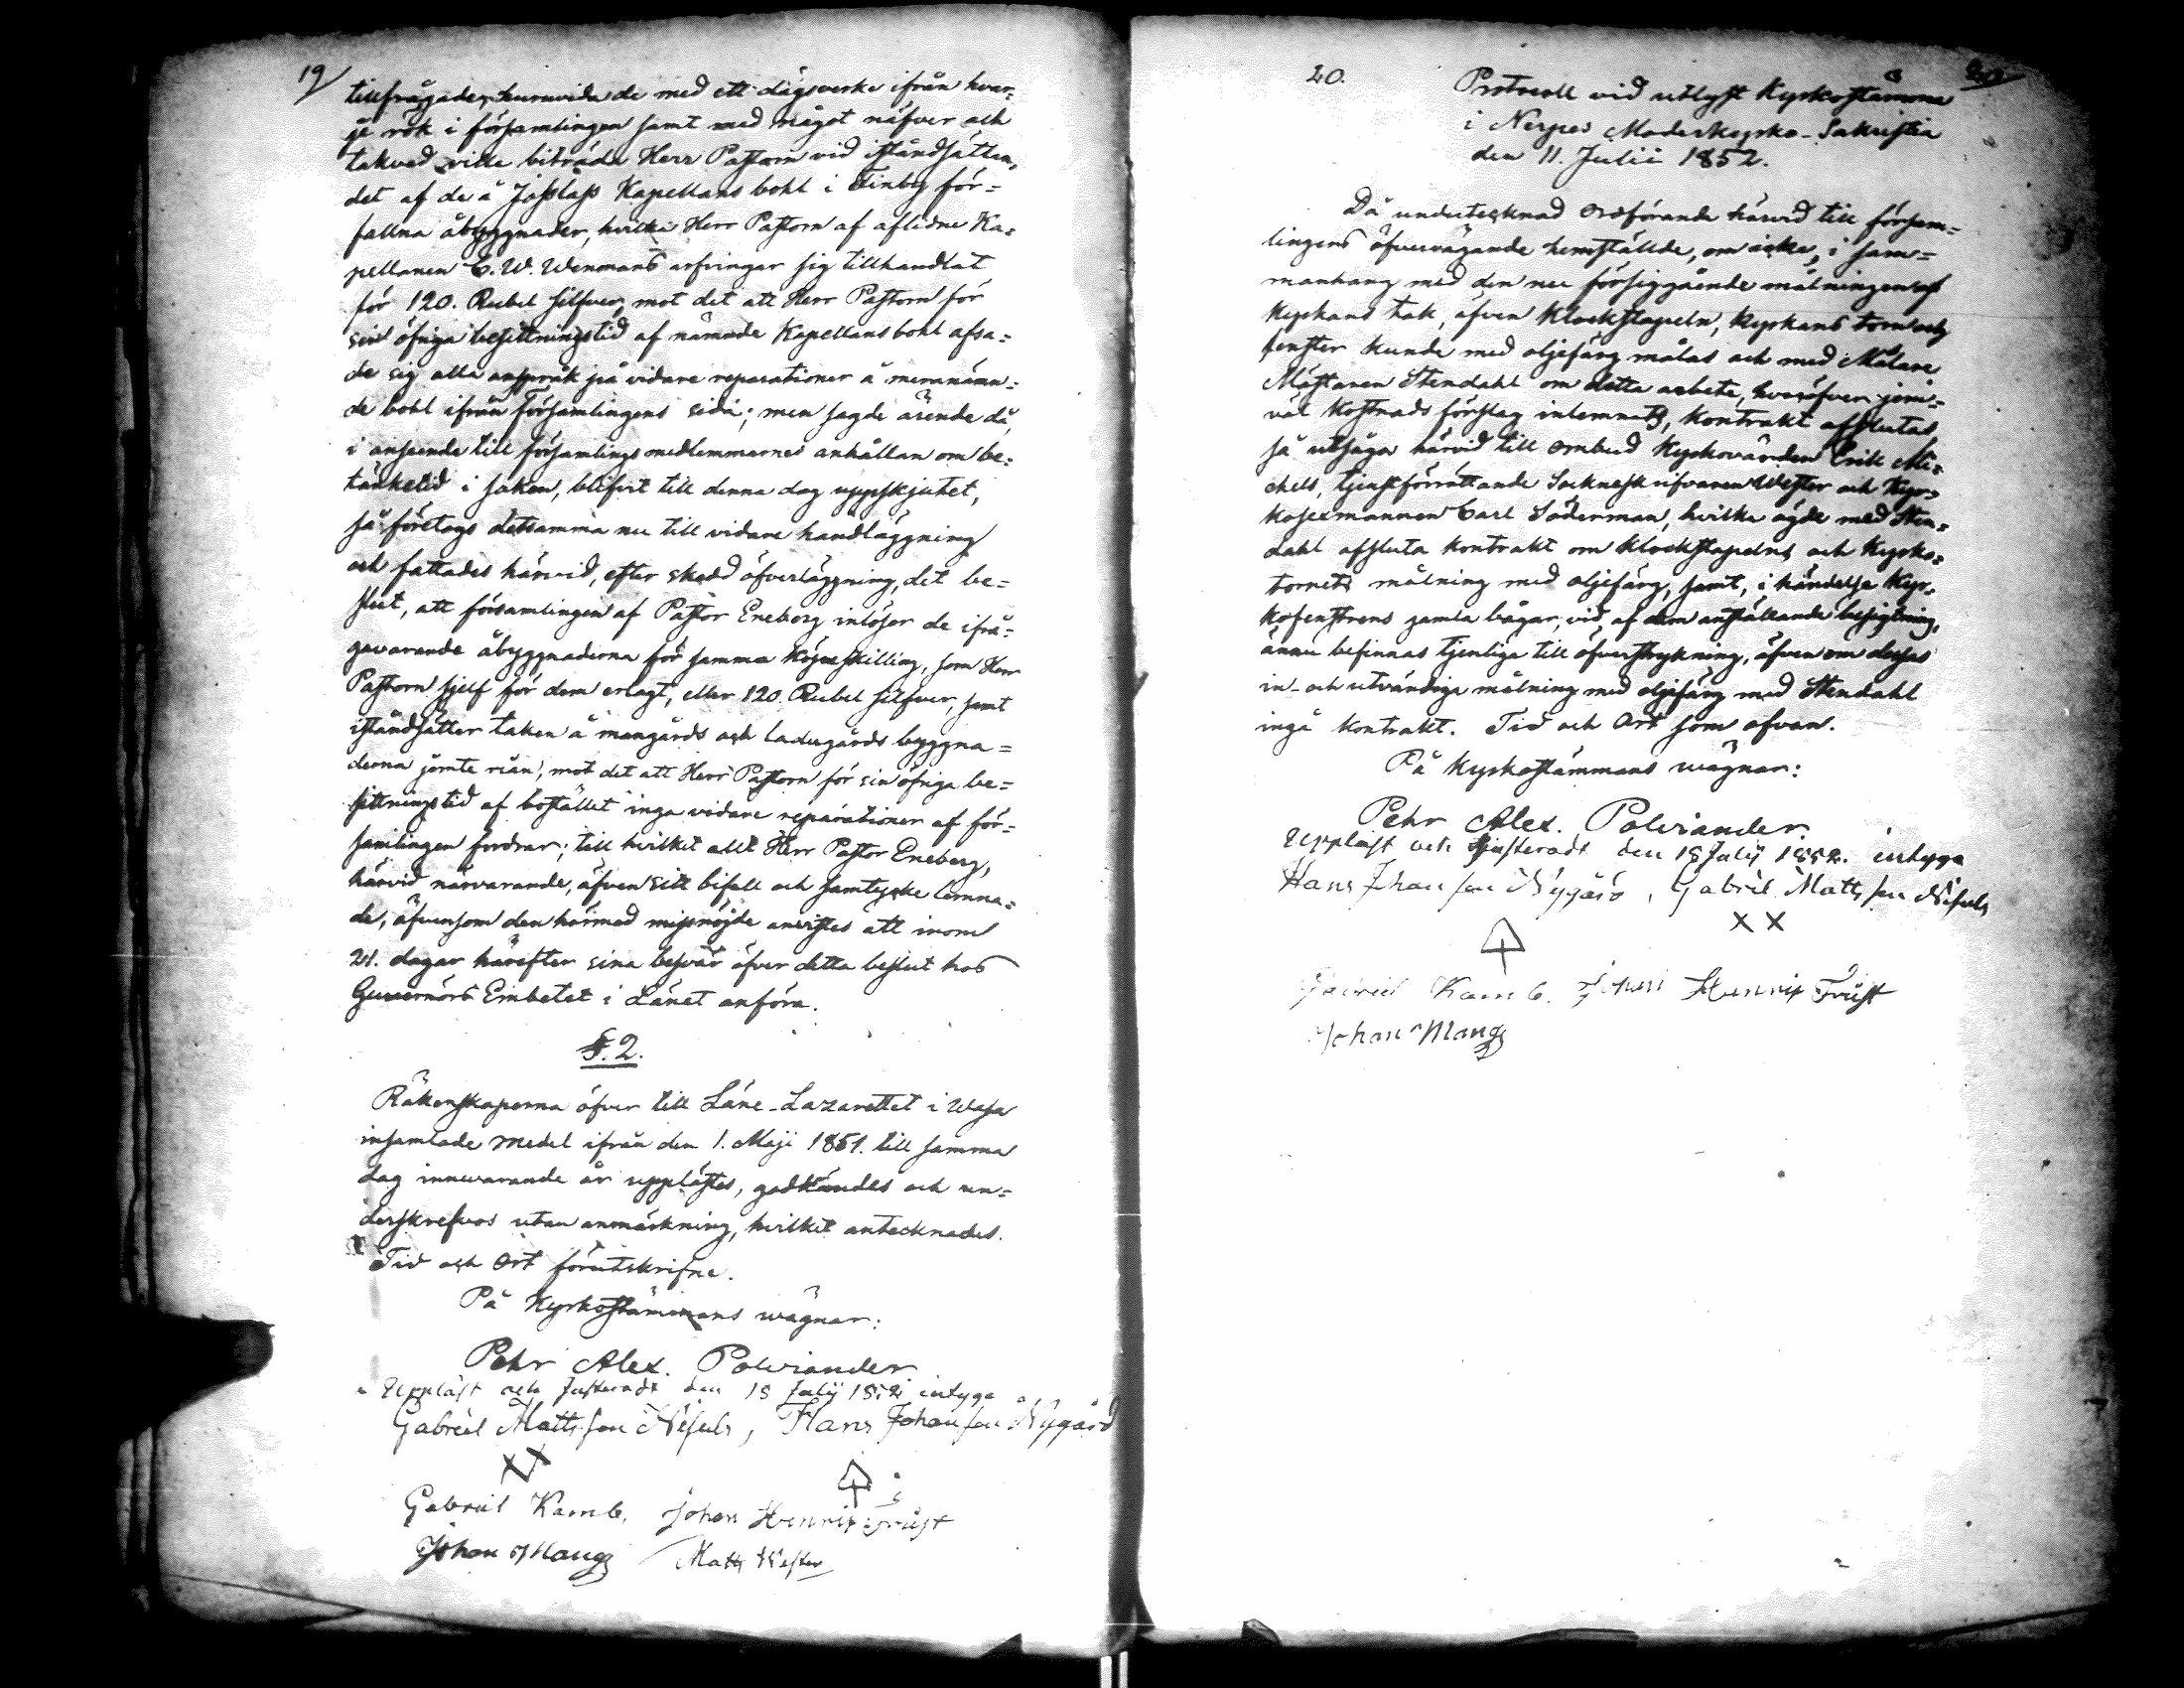 19/
tillfrågades, huruvida de med ett dagsverke ifrån hvar-
je rök i församlingen samt med något näfver och
takved ville biträda Herr Pastorn vid iståndsättan-
det af de å Jossläss Kapellans bohl i Finby för-
fallna åbyggnader, hvilka Herr Pastorn af aflidne Ka-
pellanen E. W. Wenmans arfvingar sig tillhandlat
för 120. Rubel silfver, mot det att Herr Pastorn för
sin öfriga besittningstid af nämnde Kapellans bohl afsa-
de sig alla anspråk på vidare reparationer å meranämn-
de bohl ifrån Församlingens sida; men sagde ärende då,
i anseende till församlings medlemmarnes anhållan om be-
tänketid i saken, blifvit till denna dag uppskjutet,
så företogs detsamma nu till vidare handläggning
och fattades härvid, efter skedd öfverläggning, det be-
slut, att församlingen af Pastor Eneberg inlöser de ifrå-
gavarande åbyggnaderna för samma köpeskilling, som Herr
Pastorn sjelf för dem erlagt, eller 120. Rubel silfver, samt
iståndsätter taken å mangårds och ladugårds byggna-
derna jemte rian, mot det att Herr Pastorn för sin öfriga be-
sittningstid af bostället inga vidare reparationer af för-
samlingen fordrar; till hvilket allt Herr Pastor Eneberg,
härvid närvarande, äfven sitt bifall och samtycke lemna-
de, äfvensom den härmed missnöjde anvistes att inom
21. dagar härefter sina besvär öfver detta beslut hos
Guvernörs Embetet i Länet anföra.
§. 2.
Räkenskaperna öfver till Läne-Lazarettet i Wasa
insamlade medel ifrån den 1. Maji 1851. till samma
dag innevarande år upplästes, godkändes och un-
derskrefvos utan anmärkning, hvilket antecknades.
Tid och Ort förutskrifne.
På Kyrkostämmans wägnar:
Pehr Alex. Polviander.
Uppläst och Justeradt den 18 Julij 1852 intyga
Gabriel Mattsson Nisuls, Hans Johansson Nygård
XX
Gabriel Kamb. Johan Henrik Frust
Johan Mangs Matts Wester
20.
Protocoll vid utlyst Kyrkostämma
i Nerpes Moderkyrko-Sakristia
den 11. Julii 1852.
Då undertecknad Ordförande härvid till försam-
lingens öfvervägande hemställde, om icke, i sam-
manhang med den nu försiggående målningen af
Kyrkans tak, äfven Klockstapeln, Kyrkans torn och
fenster kunde med oljefärg målas och med Målare
Mästaren Stendahl om detta arbete, hvaröfver jem-
väl Kostnads förslag inlemnats, kontrakt afslutas
så utsågs härvid till ombud Kyrkovärden Erik Mi-
chels, tjenstförrättande Sockneskrifvaren Wester och Kyr-
kosexmannen Carl Söderman, hvilka ägde med Sten-
dahl afsluta kontrakt om klockstapelns och Kyrko-
tornets målning med oljefärg, samt, i händelse Kyr-
kofenstrens gamla bågar, vid af dem anställande besigtning,
ännu befinnas tjenliga till öfverstrykning, äfven om dessas
in- och utvändiga målning med oljefärg med Stendahl
ingå kontrakt. Tid och Ort som ofvan.
På Kyrkostämmans wägnar:
Pehr Alex. Polviander.
Uppläst och Justeradt den 18 Julij 1852. intyga
Hans Johansson Nygård, Gabriel Mattsson Nisuls
XX
Gabriel Kamb. Johan Henrik Frust
Johan Mangs